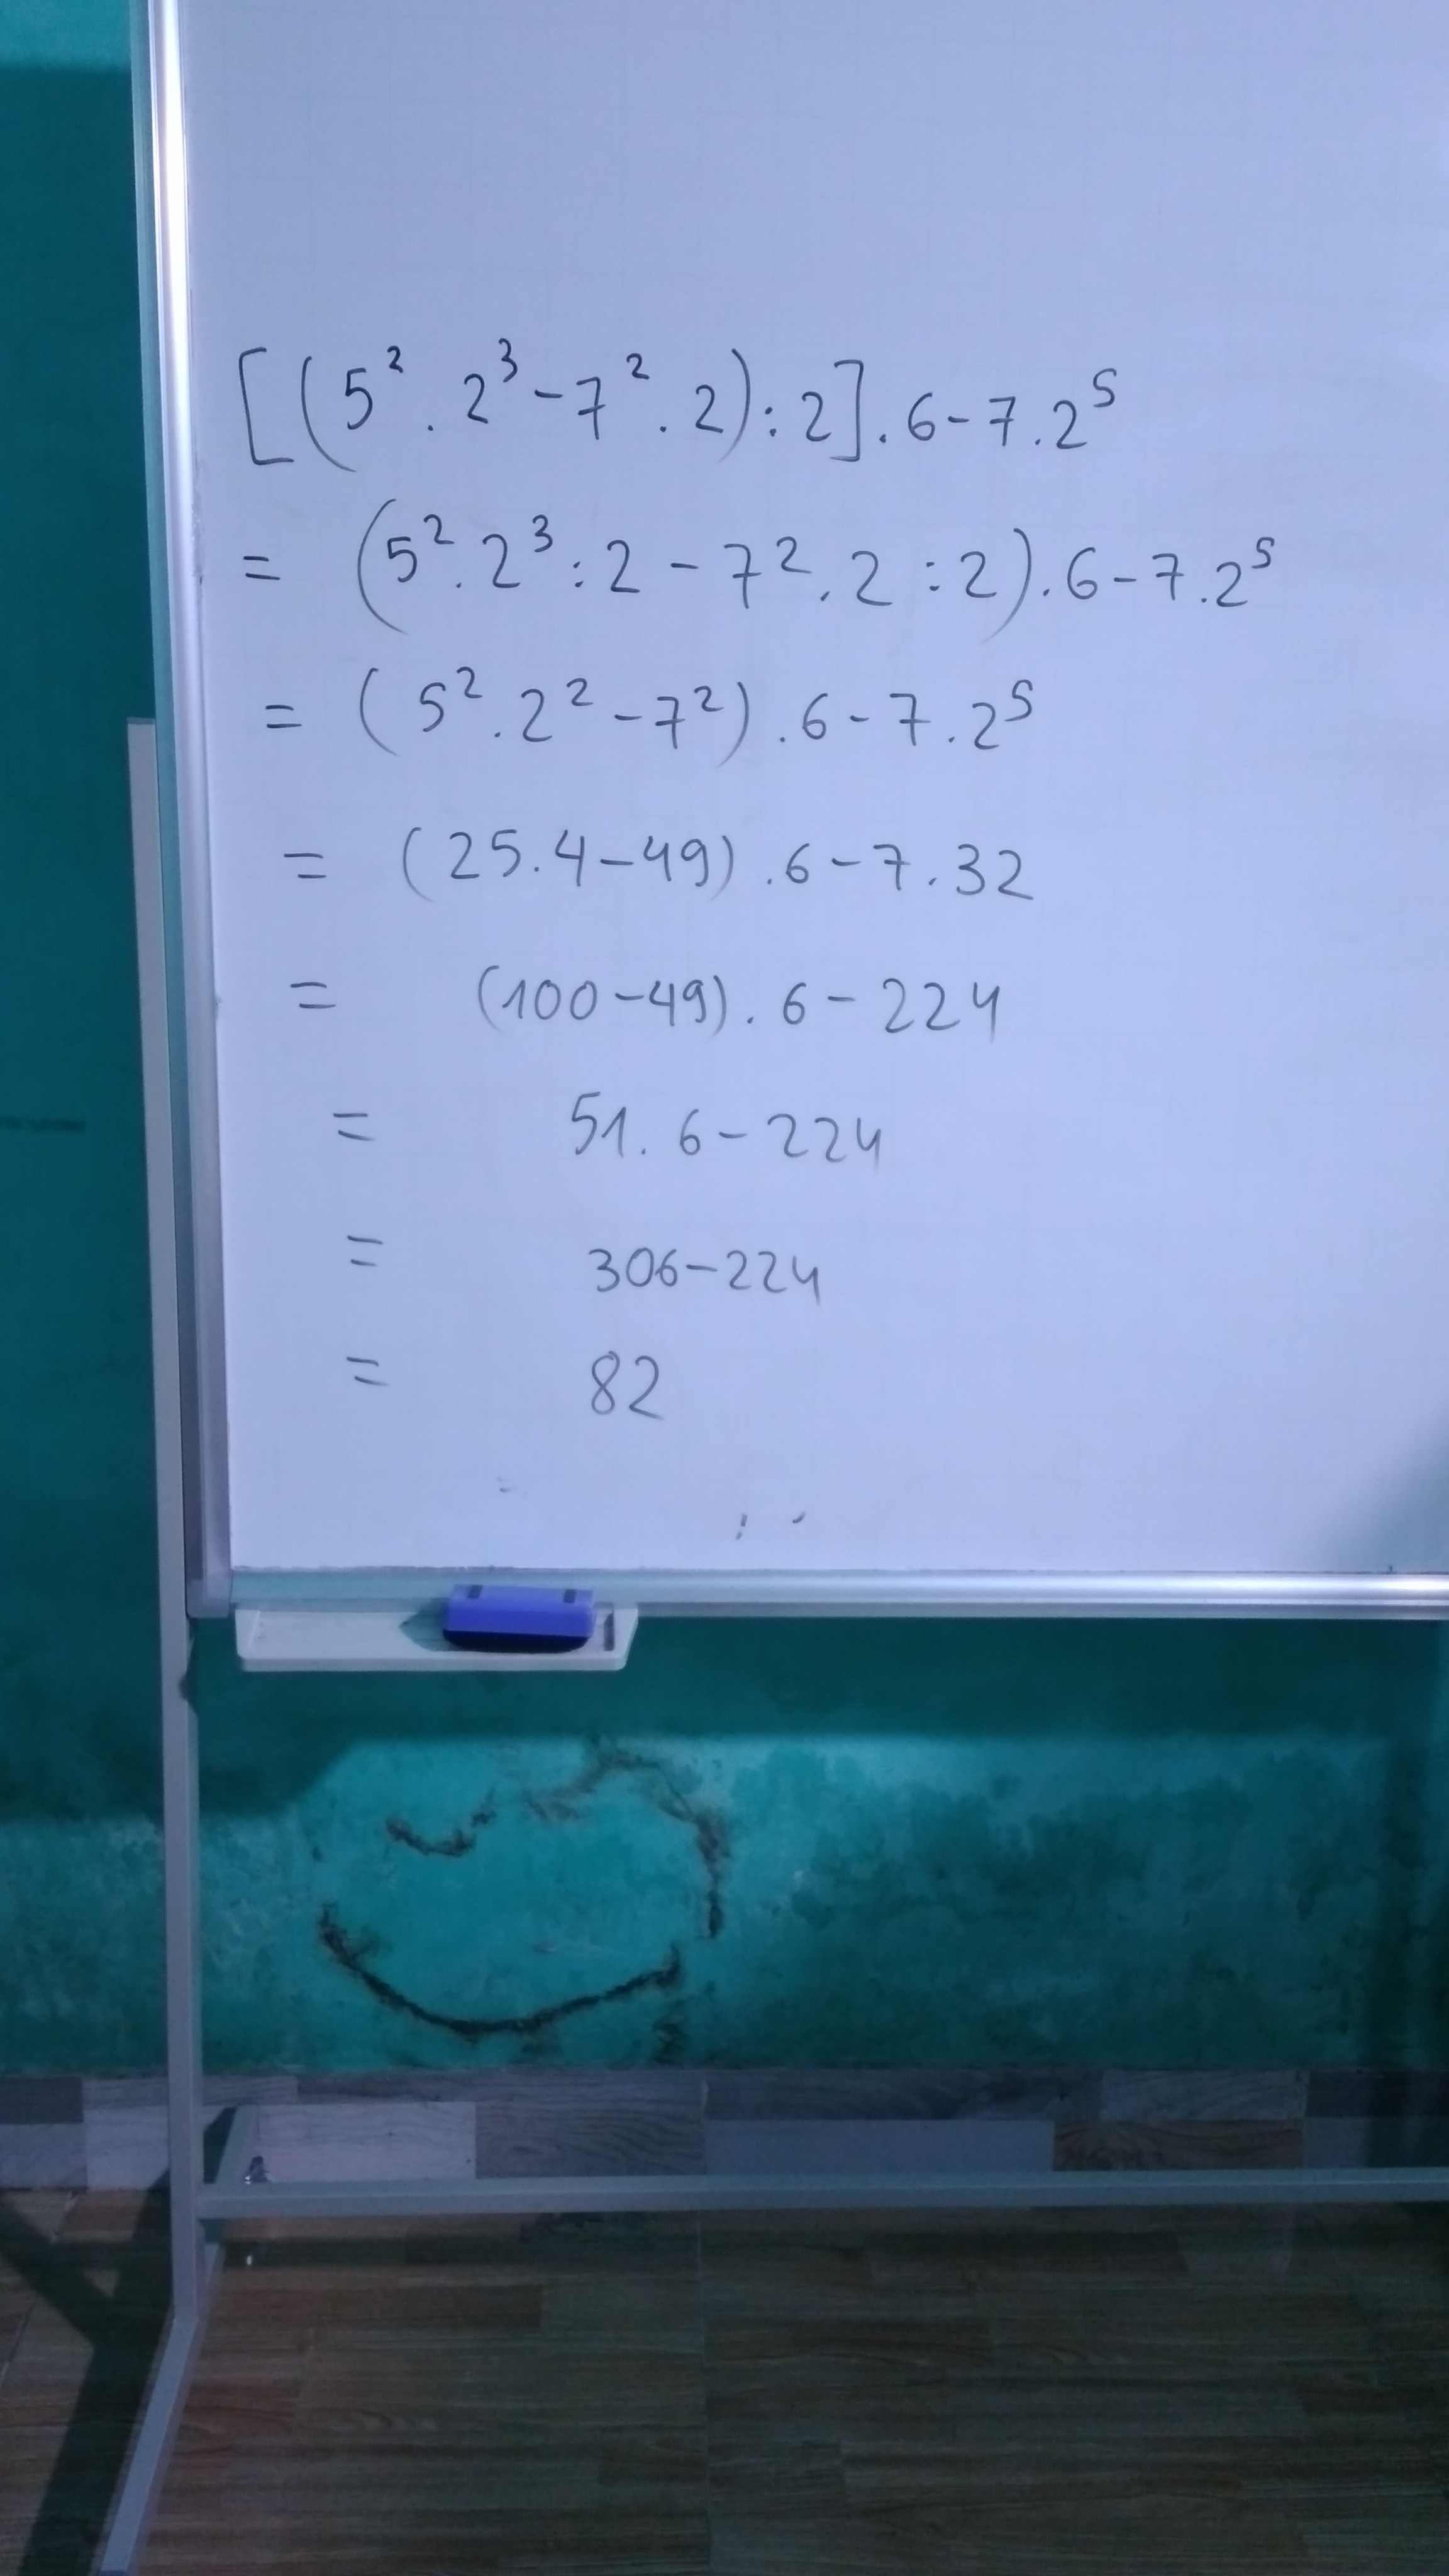 [(5² . 2³ - 7² . 2) : 2] . 6 - 7 . 2⁵
= (5² . 2³ : 2 - 7² . 2 : 2) . 6 - 7 . 2⁵
= (5² . 2² - 7²) . 6 - 7 . 2⁵
= (25 . 4 - 49) . 6 - 7 . 32
= (100 - 49) . 6 - 224
= 51 . 6 - 224
= 306 - 224
= 82